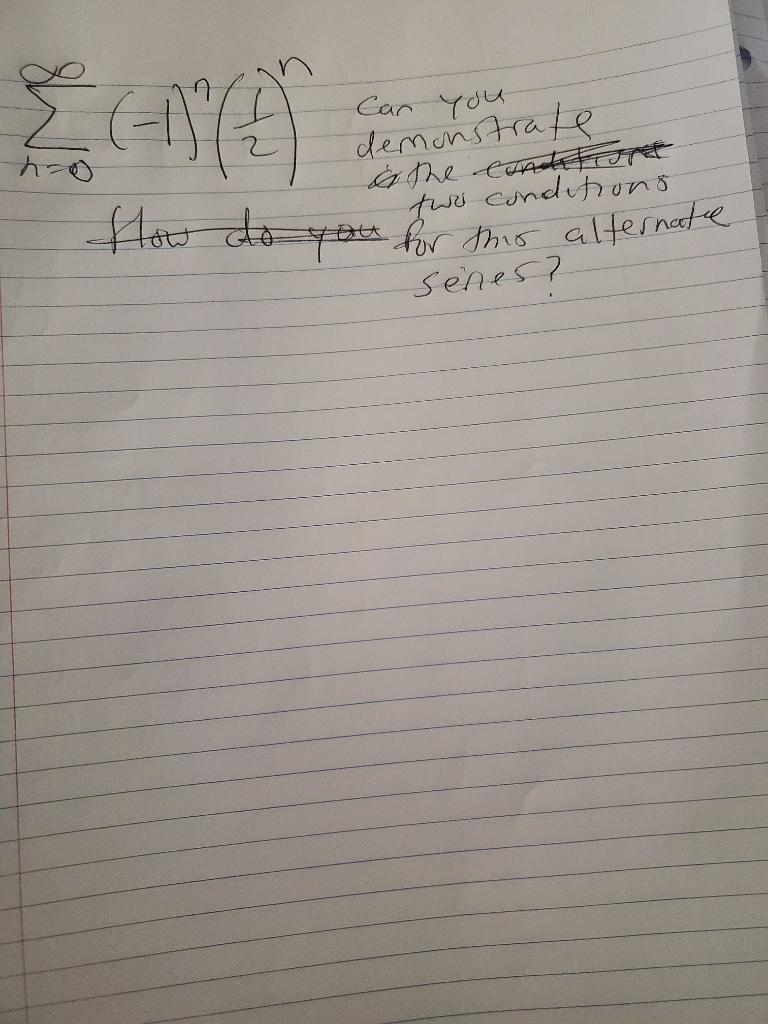 ∞
∑ (-1)^n (1/2)^n
n=0
Can you
demonstrate
the conditions
two conditions
How do you for this alternate
series?